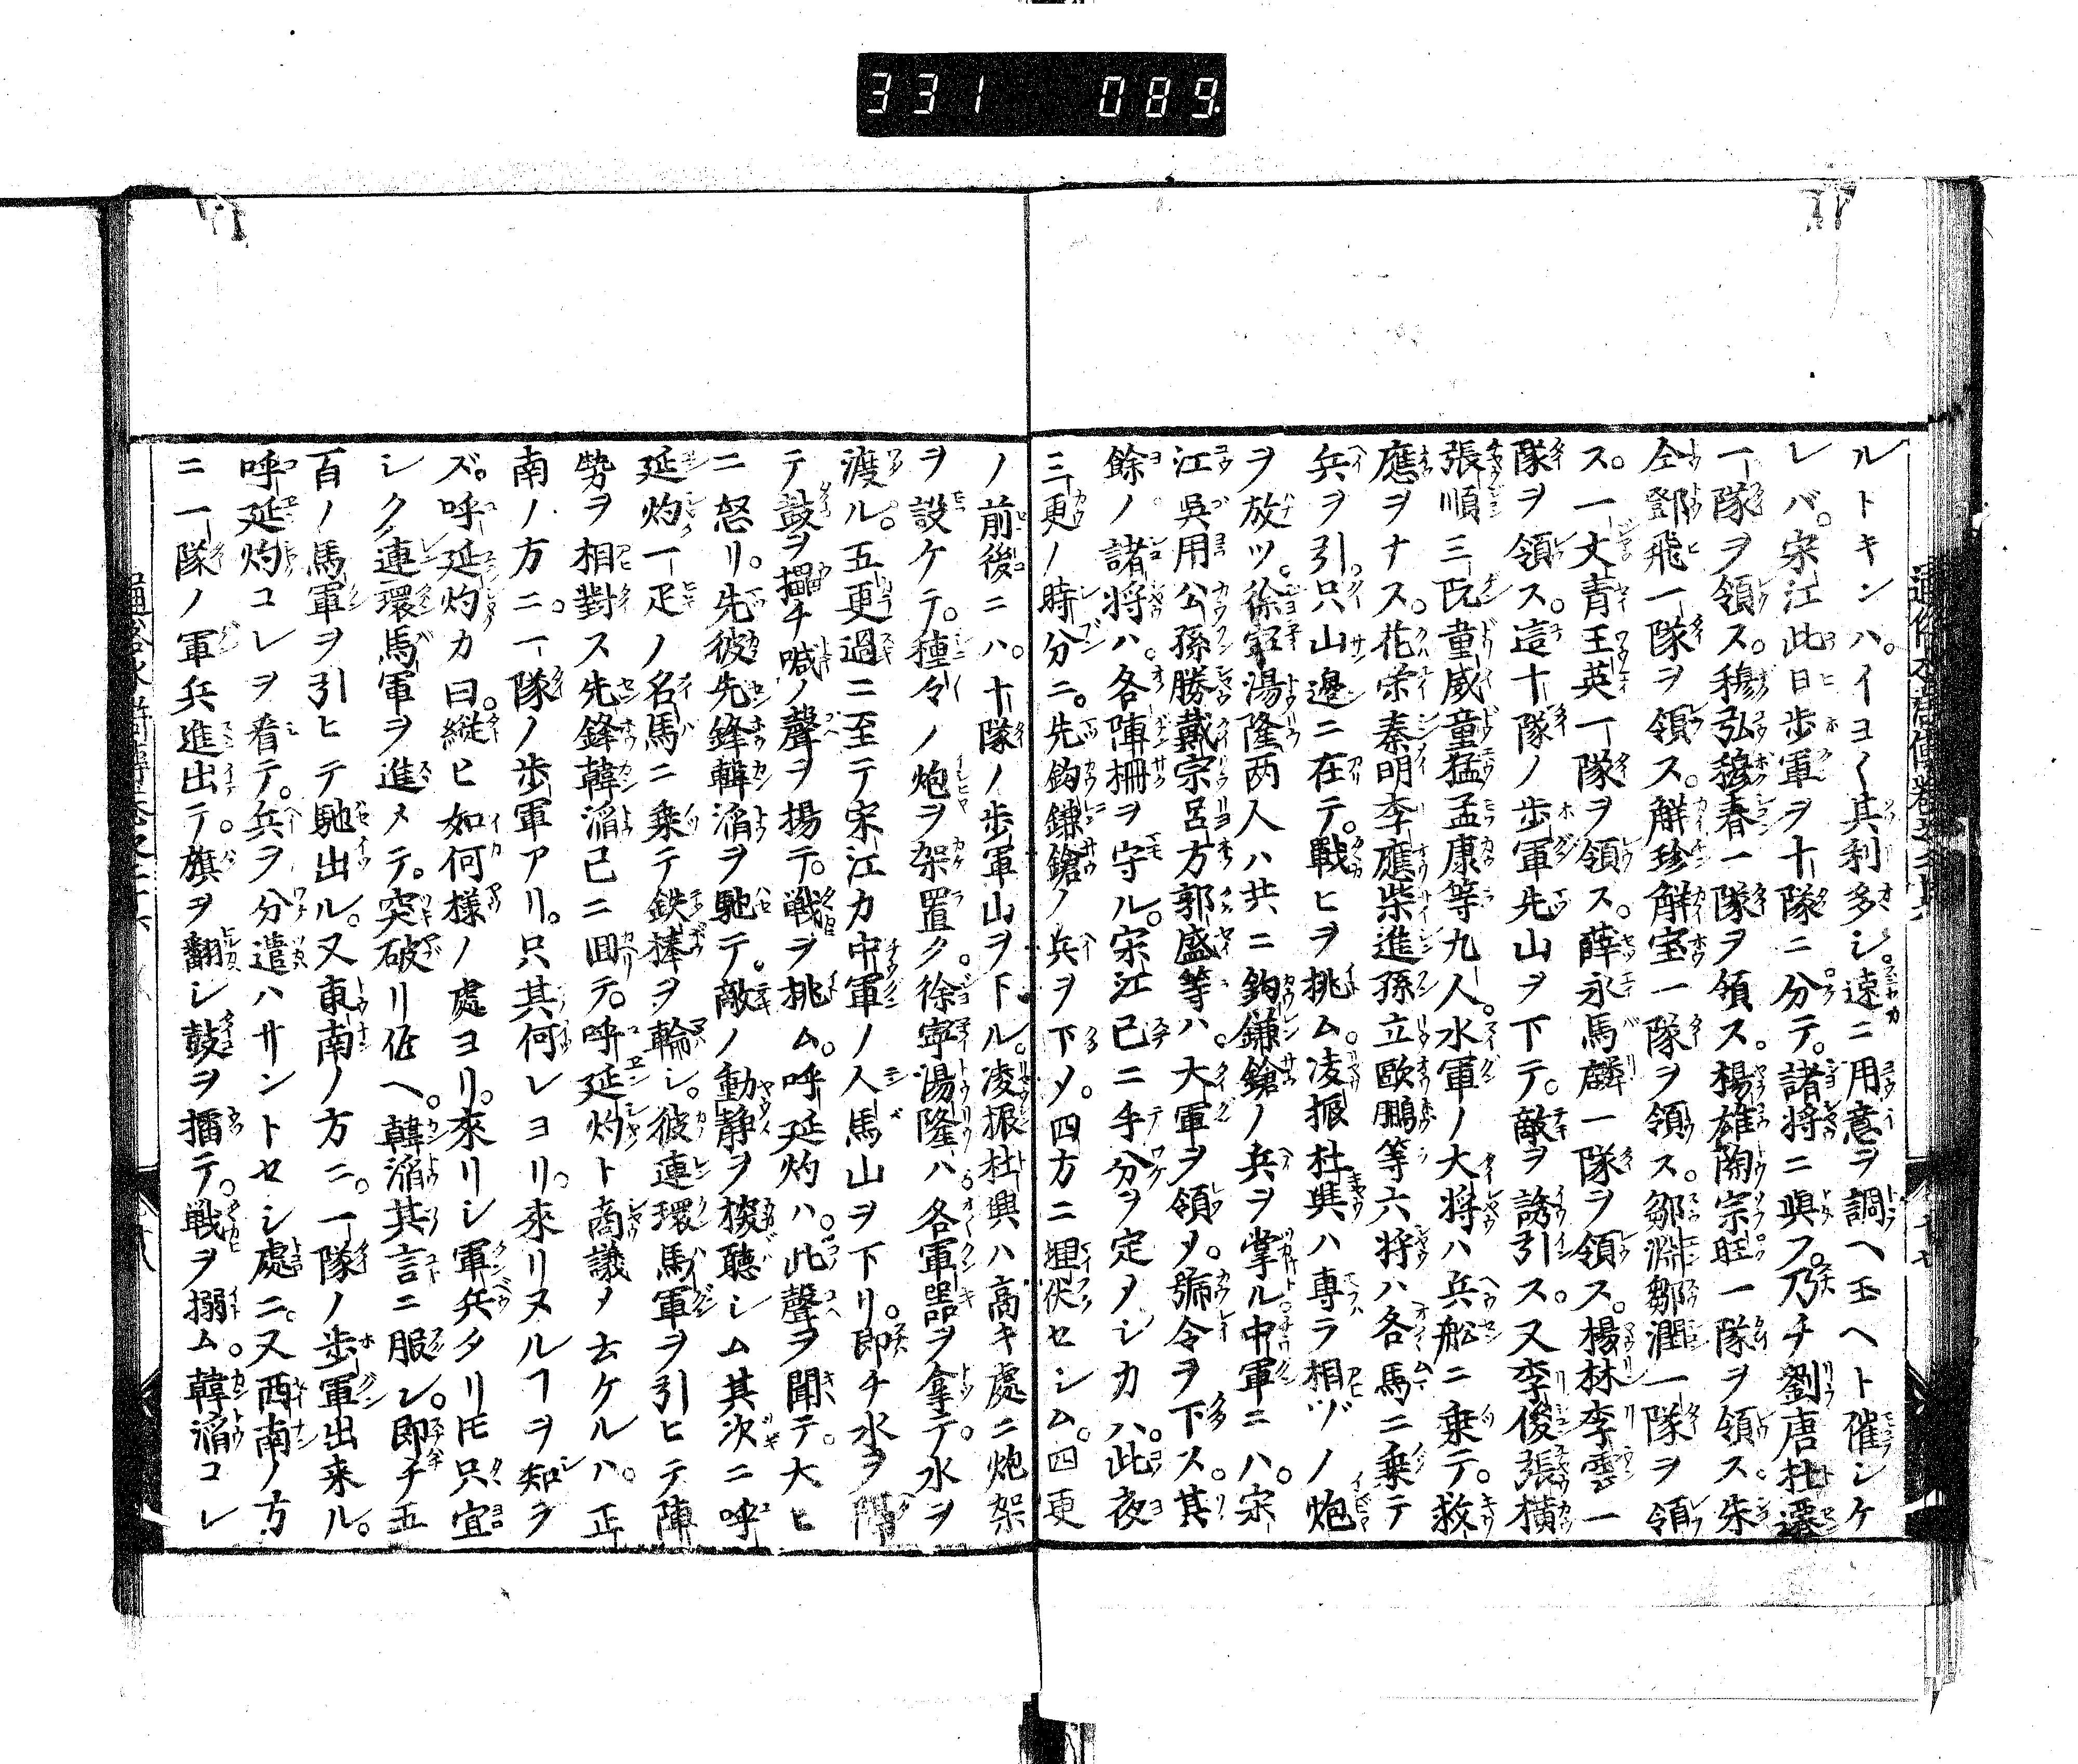 331 089
ルトキンハ。イヨ〱其利多シ。速ニ用意ヲ調ヘ玉ヘト催シケ
レバ。宋江此日歩軍ヲ十隊ニ分テ。諸将ニ與フ。乃チ劉唐杜遷
一隊ヲ領ス。穆弘穆春一隊ヲ領ス。楊雄陶宗旺一隊ヲ領ス。朱
仝鄧飛一隊ヲ領ス。解珍解宝一隊ヲ領ス。鄒淵鄒潤一隊ヲ領
ス。一丈青王英一隊ヲ領ス。薛永馬麟一隊ヲ領ス。楊林李雲一
隊ヲ領ス。這十隊ノ歩軍先山ヲ下テ。敵ヲ誘引ス。又李俊張横
張順三阮童威童猛孟康等九人。水軍ノ大将ハ兵舩ニ乗テ。救
應ヲナス。花栄秦明李應柴進孫立歐鵬等六将ハ各馬ニ乗テ
兵ヲ引。只山邉ニ在テ。戰ヒヲ挑ム。凌振杜興ハ専ラ相ヅノ炮
ヲ放ツ。徐寧湯隆両人ハ共ニ鈎鎌鎗ノ兵ヲ掌ル。中軍ニハ。宋
江呉用公孫勝戴宗呂方郭盛等ハ。大軍ヲ領メ。號令ヲ下ス。其
餘ノ諸将ハ。各陣柵ヲ守ル。宋江已ニ手分ヲ定メシカハ。此夜
三更ノ時分ニ。先鈎鎌鎗ノ兵ヲ下メ。四方ニ埋伏セシム。四更
ノ前後ニハ。十隊ノ歩軍山ヲ下ル。凌振杜興ハ高キ處ニ炮架
ヲ設ケテ。種々ノ炮ヲ架置ク。徐寧湯隆ハ各軍噐ヲ拿テ。水ヲ
渡ル。五更過ニ至テ宋江カ中軍ノ人馬山ヲ下リ。即チ水ヲ隔
テ鼓ヲ擂チ喊ノ聲ヲ揚テ。戦ヲ挑ム。呼延灼ハ。此聲ヲ聞テ。大ヒ
ニ怒リ。先彼先鋒韓滔ヲ馳テ。敵ノ動静ヲ候聽シム其次ニ呼
延灼一疋ノ名馬ニ乗テ鉄棒ヲ輪シ。彼連環馬軍ヲ引ヒテ陣
勢ヲ相對ス先鋒韓滔已ニ囬テ。呼延灼ト商議メ去ケルハ。正
南ノ方ニ。一隊ノ歩軍アリ。只其何レヨリ。來リヌルヿヲ知ラ
ズ。呼延灼カ曰。縦ヒ如何様ノ處ヨリ。來リシ軍兵タリ𪜈只宜
シク連環馬軍ヲ進メテ。突破リ玉ヘ。韓滔其言ニ服シ。即チ五
百ノ馬軍ヲ引ヒテ馳出ル。又東南ノ方ニ。一隊ノ歩軍出来ル。
呼延灼コレヲ看テ。兵ヲ分遣ハサントセシ處ニ。又西南ノ方
ニ一隊ノ軍兵進出テ。旗ヲ翻シ鼓ヲ擂テ。戦ヲ搦ム。韓滔コレ